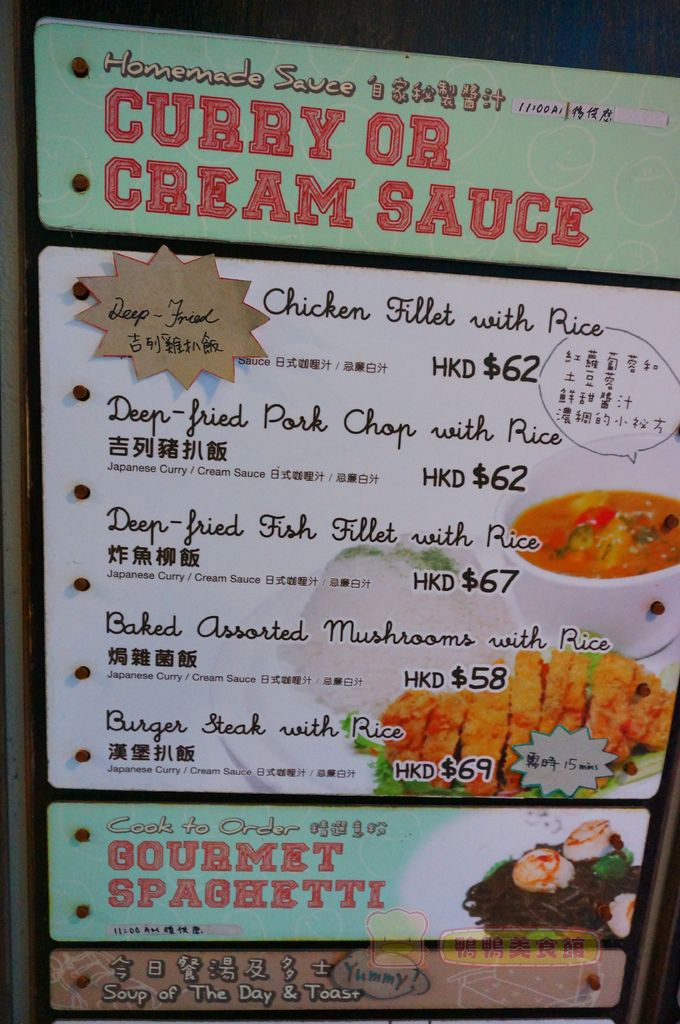 Homemade Sauce 自家秘製醬汁
11:00AM 後供應
CURRY OR
CREAM SAUCE
Deep-Fried
吉列雞扒飯
Chicken Fillet with Rice
Sauce 日式咖喱汁 / 忌廉白汁
HKD $62
紅蘿蔔蓉和
土豆蓉
鮮甜醬汁
濃稠的小祕方
Deep-fried Pork Chop with Rice
吉列豬扒飯
Japanese Curry / Cream Sauce 日式咖喱汁 / 忌廉白汁
HKD $62
Deep-fried Fish Fillet with Rice
炸魚柳飯
Japanese Curry / Cream Sauce 日式咖喱汁 / 忌廉白汁
HKD $67
Baked Assorted Mushrooms with Rice
焗雜菌飯
Japanese Curry / Cream Sauce 日式咖喱汁 / 忌廉白汁
HKD $58
Burger Steak with Rice
漢堡扒飯
Japanese Curry / Cream Sauce 日式咖喱汁 / 忌廉白汁
HKD $69
需時 15 mins
Cook to Order 精選意粉
GOURMET
SPAGHETTI
11:00 AM 後供應
今日餐湯及多士
Yummy!
Soup of The Day & Toast
鴨鴨美食館